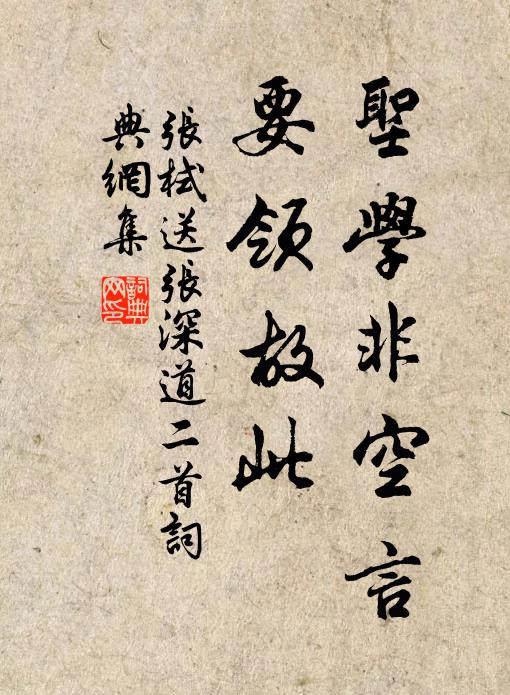 聖學非空言
要領故此
張栻送張深道二首詞
典網集
詞典
网印